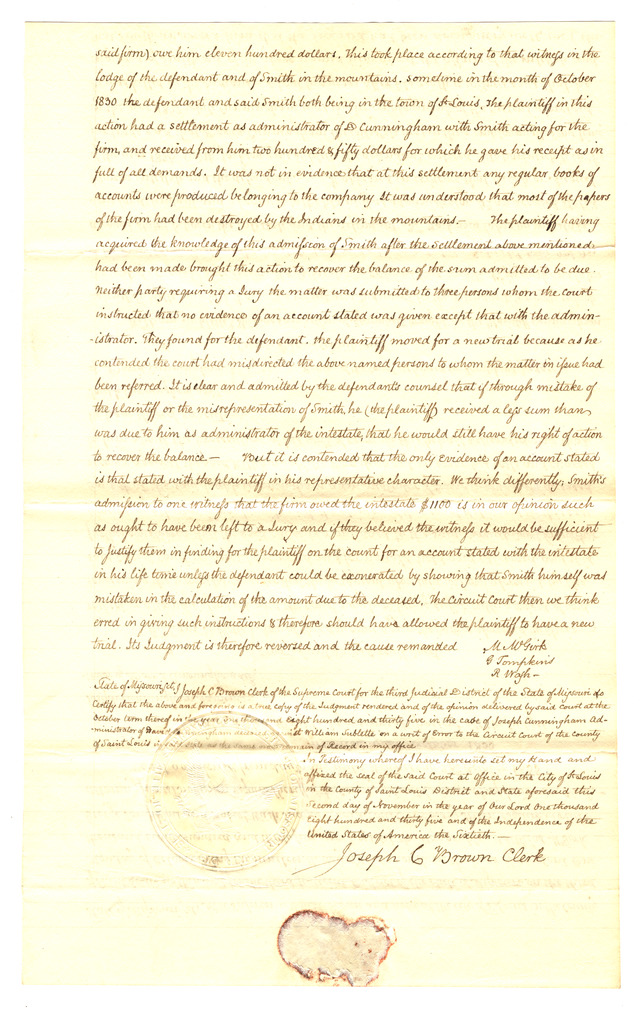 said firm) owe him eleven hundred dollars. This took place according to that witness in the
lodge of the defendant and of Smith in the mountains. sometime in the month of October
1830 the defendant and said Smith both being in the town of St Louis, the plaintiff in this
action had a settlement as administrator of D Cunningham with Smith acting for the
firm, and received from him two hundred & fifty dollars for which he gave his receipt as in
full of all demands. It was not in evidence that at this settlement any regular books of
accounts were produced belonging to the company It was understood that most of the papers
of the firm had been destroyed by the Indians in the mountains.— The plaintiff having
acquired the knowledge of this admission of Smith after the settlement above mentioned
had been made brought this action to recover the balance of the sum admitted to be due.
Neither party requiring a Jury the matter was submitted to three persons whom the Court
instructed that no evidence of an account stated was given except that with the admin-
-istrator. They found for the defendant. the plaintiff moved for a new trial because as he
contended the court had misdirected the above named persons to whom the matter in issue had
been referred. It is clear and admitted by the defendants counsel that if through mistake of
the plaintiff or the misrepresentation of Smith, he (the plaintiff) received a less sum than
was due to him as administrator of the intestate, that he would still have his right of action
to recover the balance— But it is contended that the only evidence of an account stated
is that stated with the plaintiff in his representative character. We think differently; Smith's
admission to one witness that the firm owed the intestate $1100 is in our opinion such
as ought to have been left to a Jury and if they believed the witness it would be sufficient
to Justify them in finding for the plaintiff on the count for an account stated with the intestate
in his life time unless the defendant could be exonerated by showing that Smith himself was
mistaken in the calculation of the amount due to the deceased, The Circuit Court then we think
erred in giving such instructions & therefore should have allowed the plaintiff to have a new
trial. Its Judgment is therefore reversed and the cause remanded M. McGirk
G Tompkins
R Wash
State of Missouri Sct, I Joseph C Brown Clerk of the Supreme Court for the third Judicial District of the State of Missouri do
Certify that the above and foregoing is a true copy of the Judgment rendered and of the opinion delivered by said Court at the
October term thereof in the year One thousand Eight hundred and thirty five in the case of Joseph Cunningham Ad-
-ministrator of Cunningham deceased William Sublette on a writ of Error to the Circuit Court of the County
of Saint Louis as the same remain of Record in my office
In Testimony whereof I have hereunto set my Hand and
affixed the seal of the said Court at Office in the City of St Louis
in the County of Saint Louis District and State aforesaid this
Second day of November in the year of Our Lord One thousand
Eight hundred and thirty five and of the Independence of the
United States of America the Sixtieth.—
Joseph C Brown Clerk